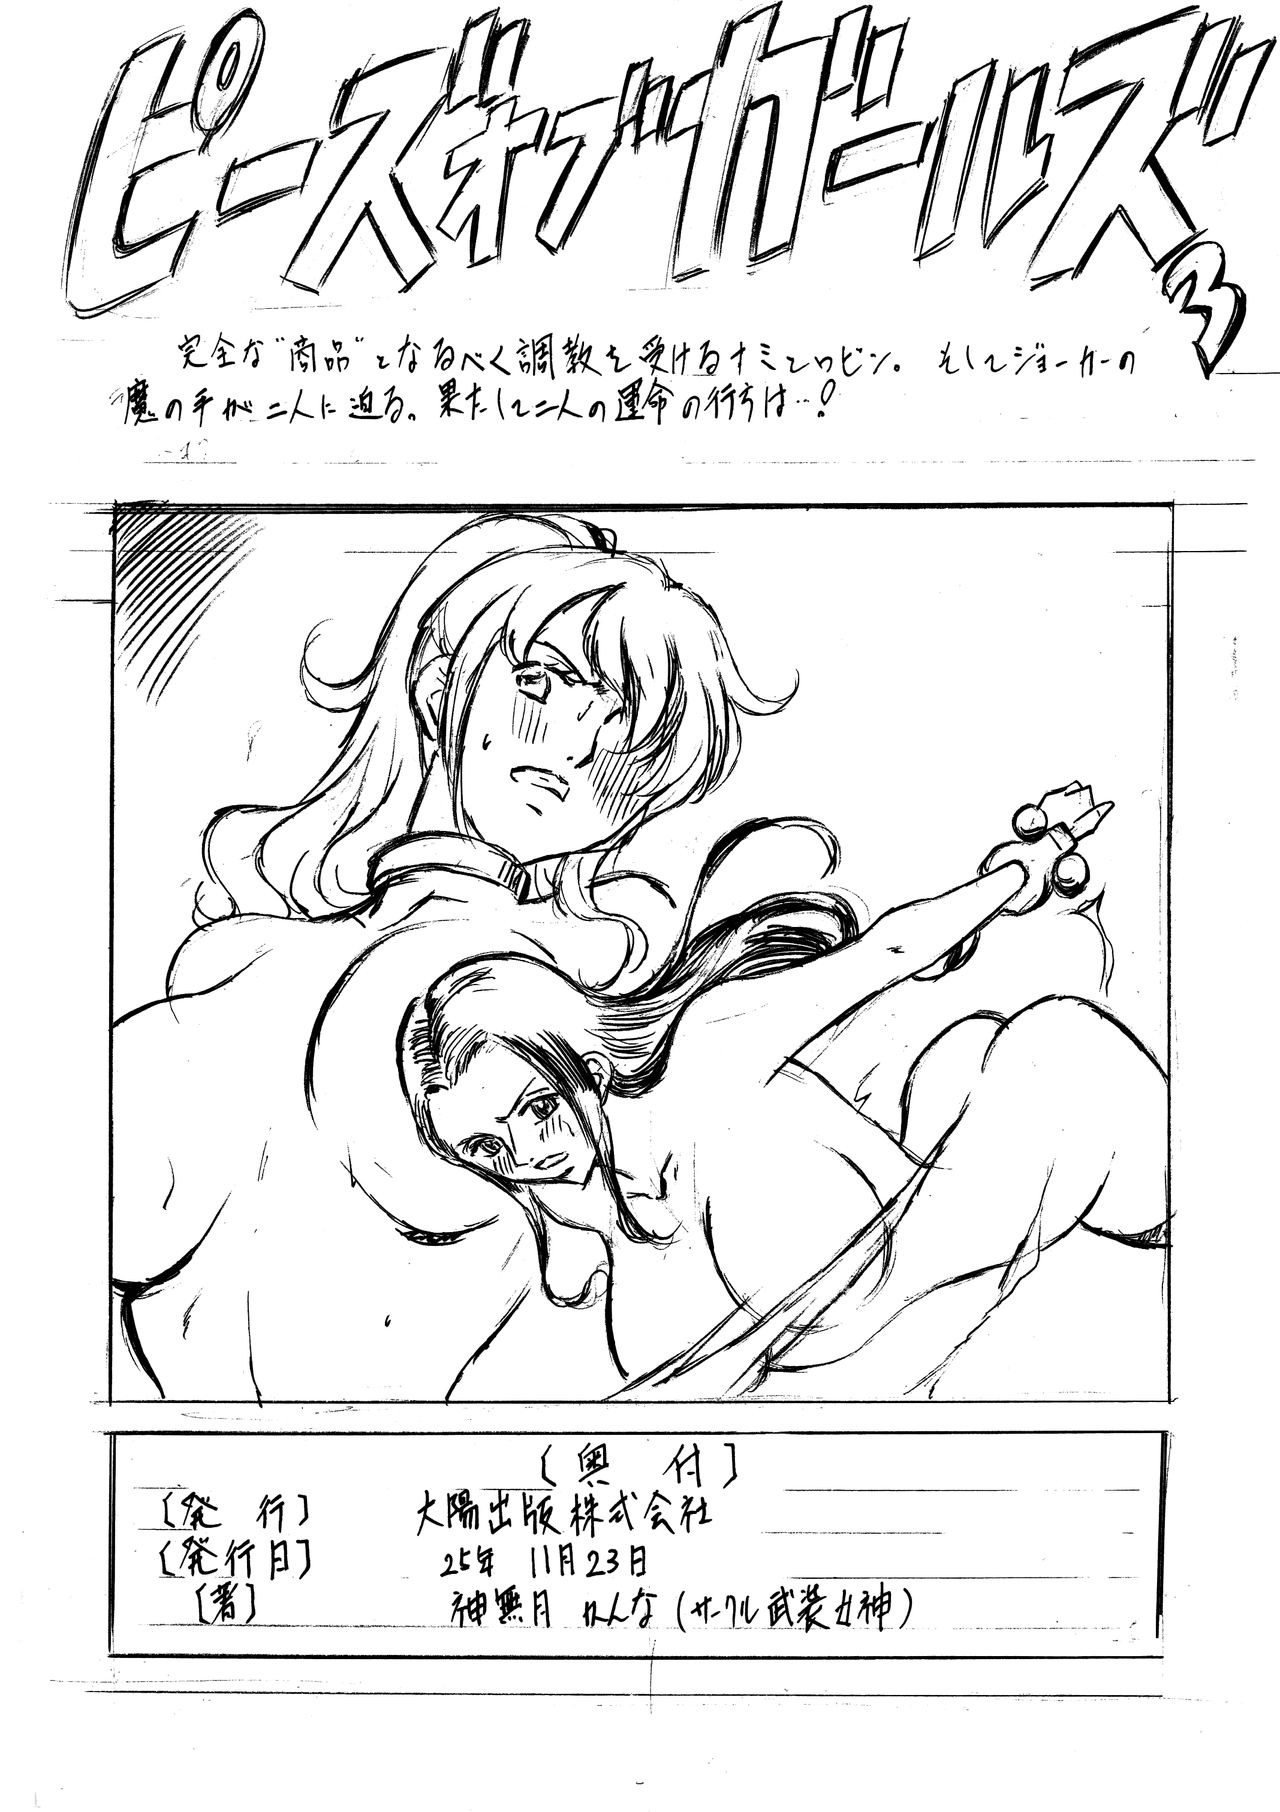 ピースオブガールズ3
完全な"商品"となるべく調教を受けるナミとロビン。そしてジョーカーの
魔の手が二人に迫る。果たして二人の運命の行方は…!
[奥 付]
[発 行] 大陽出版株式会社
[発行日] 25年 11月23日
[著] 神無月 かんな(サークル武装女神)